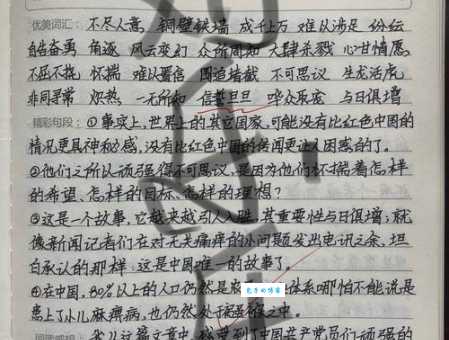 优美词汇: 不尽人意 铜壁铁墙 成千上万 难以涉足 纷纭
自告奋勇 角逐 风云变幻 众所周知 大肆杀戮 心甘情愿
不屈不挠 怀揣 难以置信 围追堵截 不可思议 生龙活虎
非同寻常 炽热 一无所知 信誓旦旦 哗众取宠 与日俱增
精彩句段: ①事实上,世界上的其它国家,可能没有比红色中国的
情况更具神秘感,没有比红色中国的传闻更让人困惑的了。
②他们之所以顽强得不可思议,是因为他们怀揣着怎样
的希望、怎样的目标、怎样的理想?
③这是一个故事,它越来越引人入胜,其重要性与日俱增;就
像新闻记者们在对无关痛痒的小问题发出电讯之余,坦
白承认的那样:这是中国唯一的故事了。
④在中国,80%以上的人口仍然是 体系哪怕不能说是
患上了小儿麻痹病,也仍然处于 之中。
包子的博客
这篇文章中,我 到了中国共产党员们顽强的